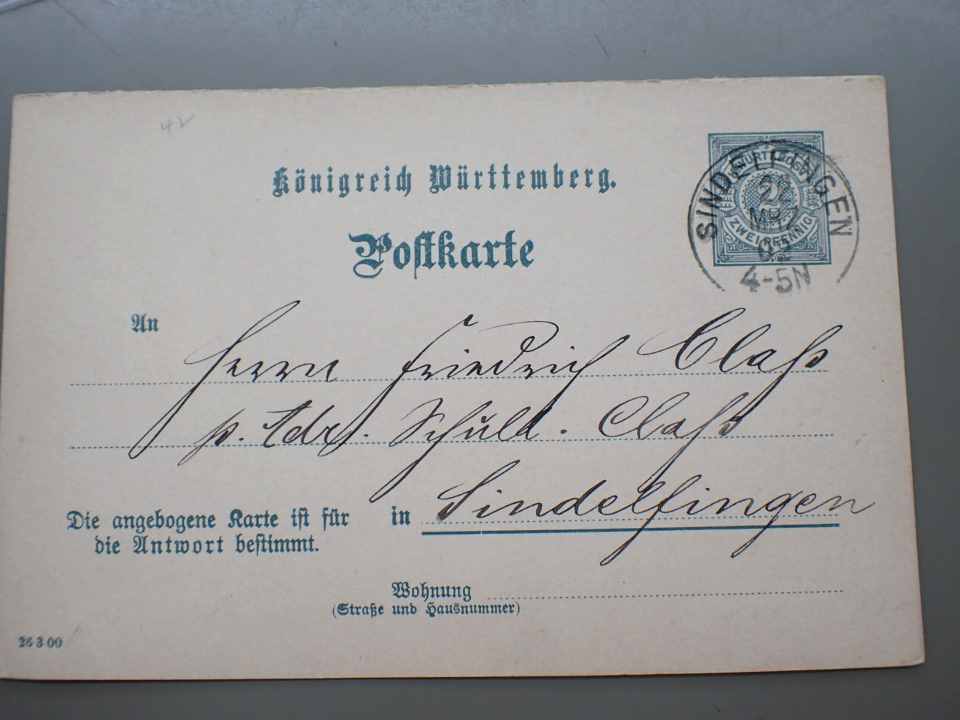 42
Königreich Württemberg.
Postkarte
SINDELFINGEN
22
MRZ
02
4-5N
ZWEI PFENNIG
An
Herrn Friedrich Claß
p. Adr. Schuld. Claß
Die angebogene Karte ist für
die Antwort bestimmt.
in Sindelfingen
Wohnung
(Straße und Hausnummer)
26 3 00